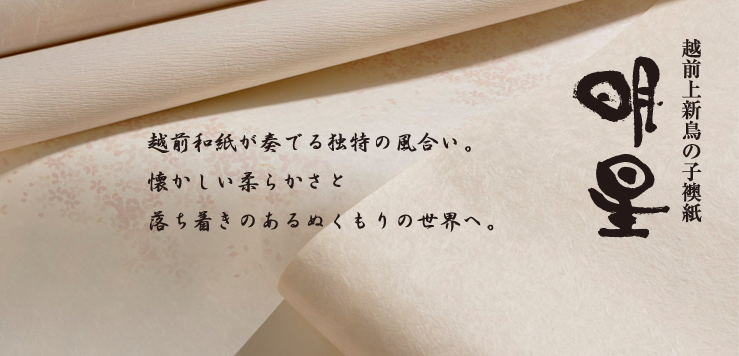 越前上新鳥の子襖紙
明星
越前和紙が奏でる独特の風合い。
懐かしい柔らかさと
落ち着きのあるぬくもりの世界へ。